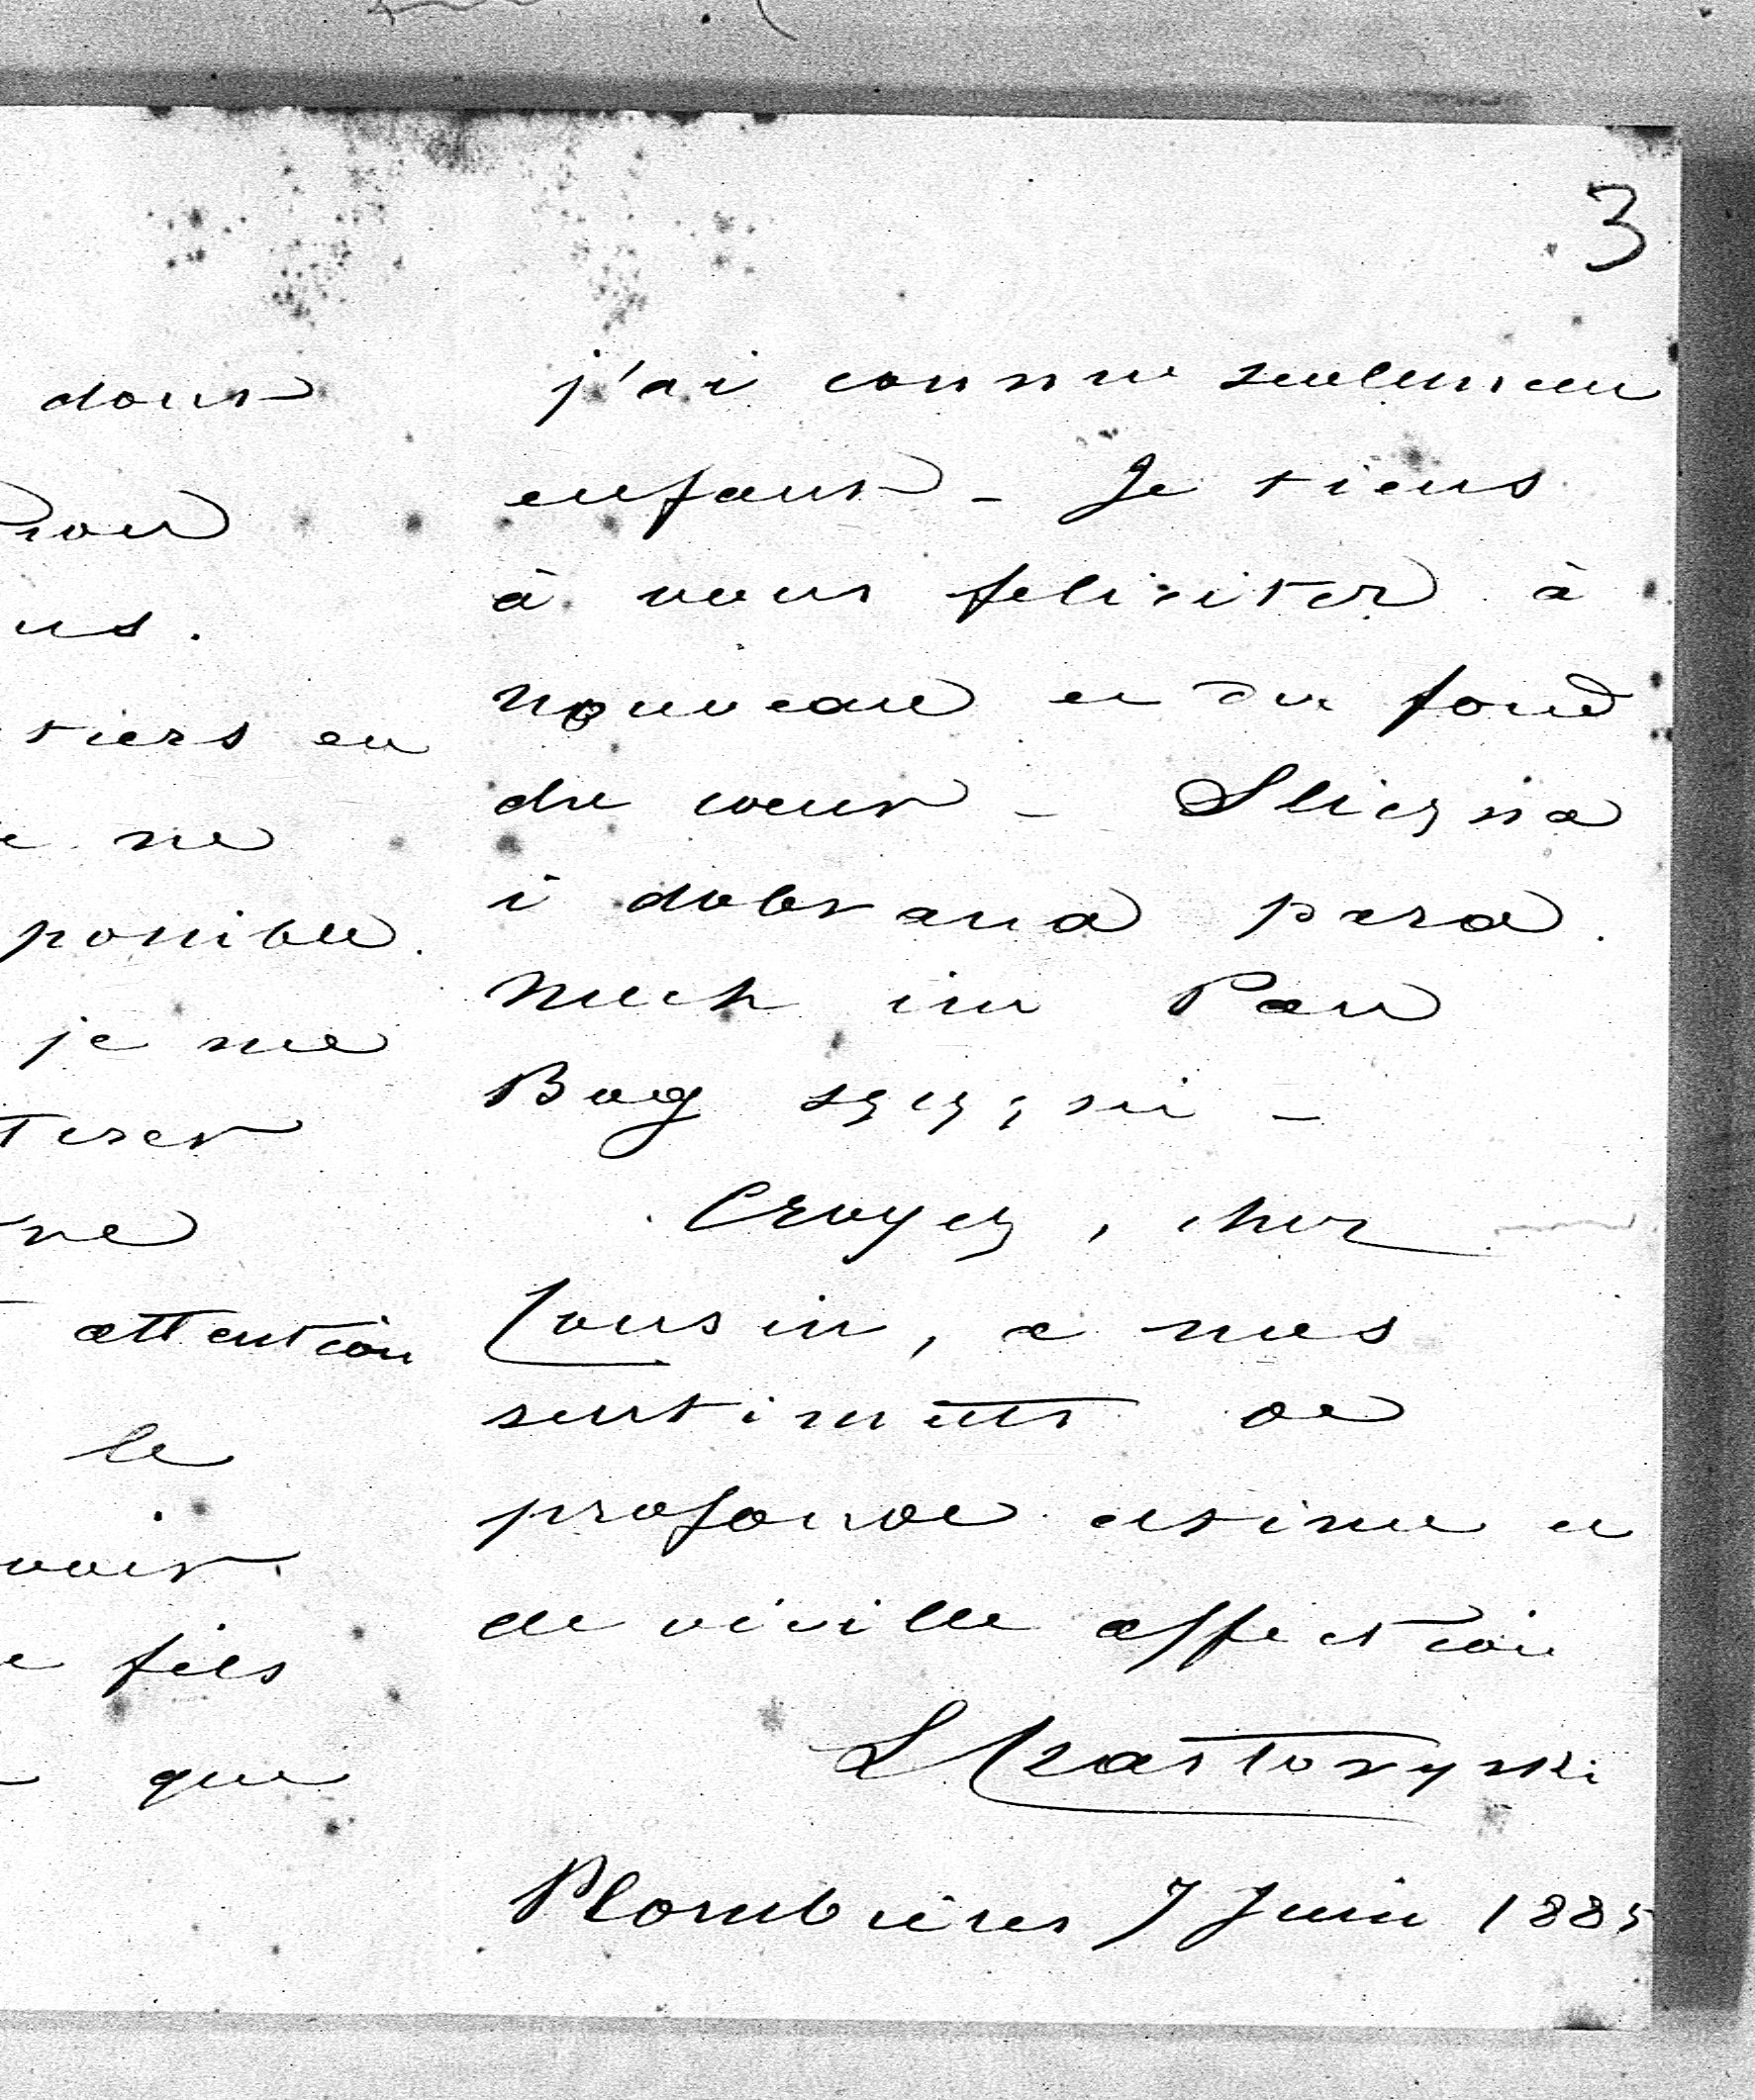 3
dont
us.
tiers en
ne
ponible.
je me
attention
le
voir.
fils
que
j'ai connu seulement
enfant - Je tiens
à vous feliciter à
nouveau et du fond
du coeur - Sliczna
i dobrana para.
Niech im Pan
Bog szczęsci -
Croyez, cher
Cousin, a mes
sentimtts de
profonde estime et
de vieille affection
L Czartoryski
Plombières 7 Juin 1885